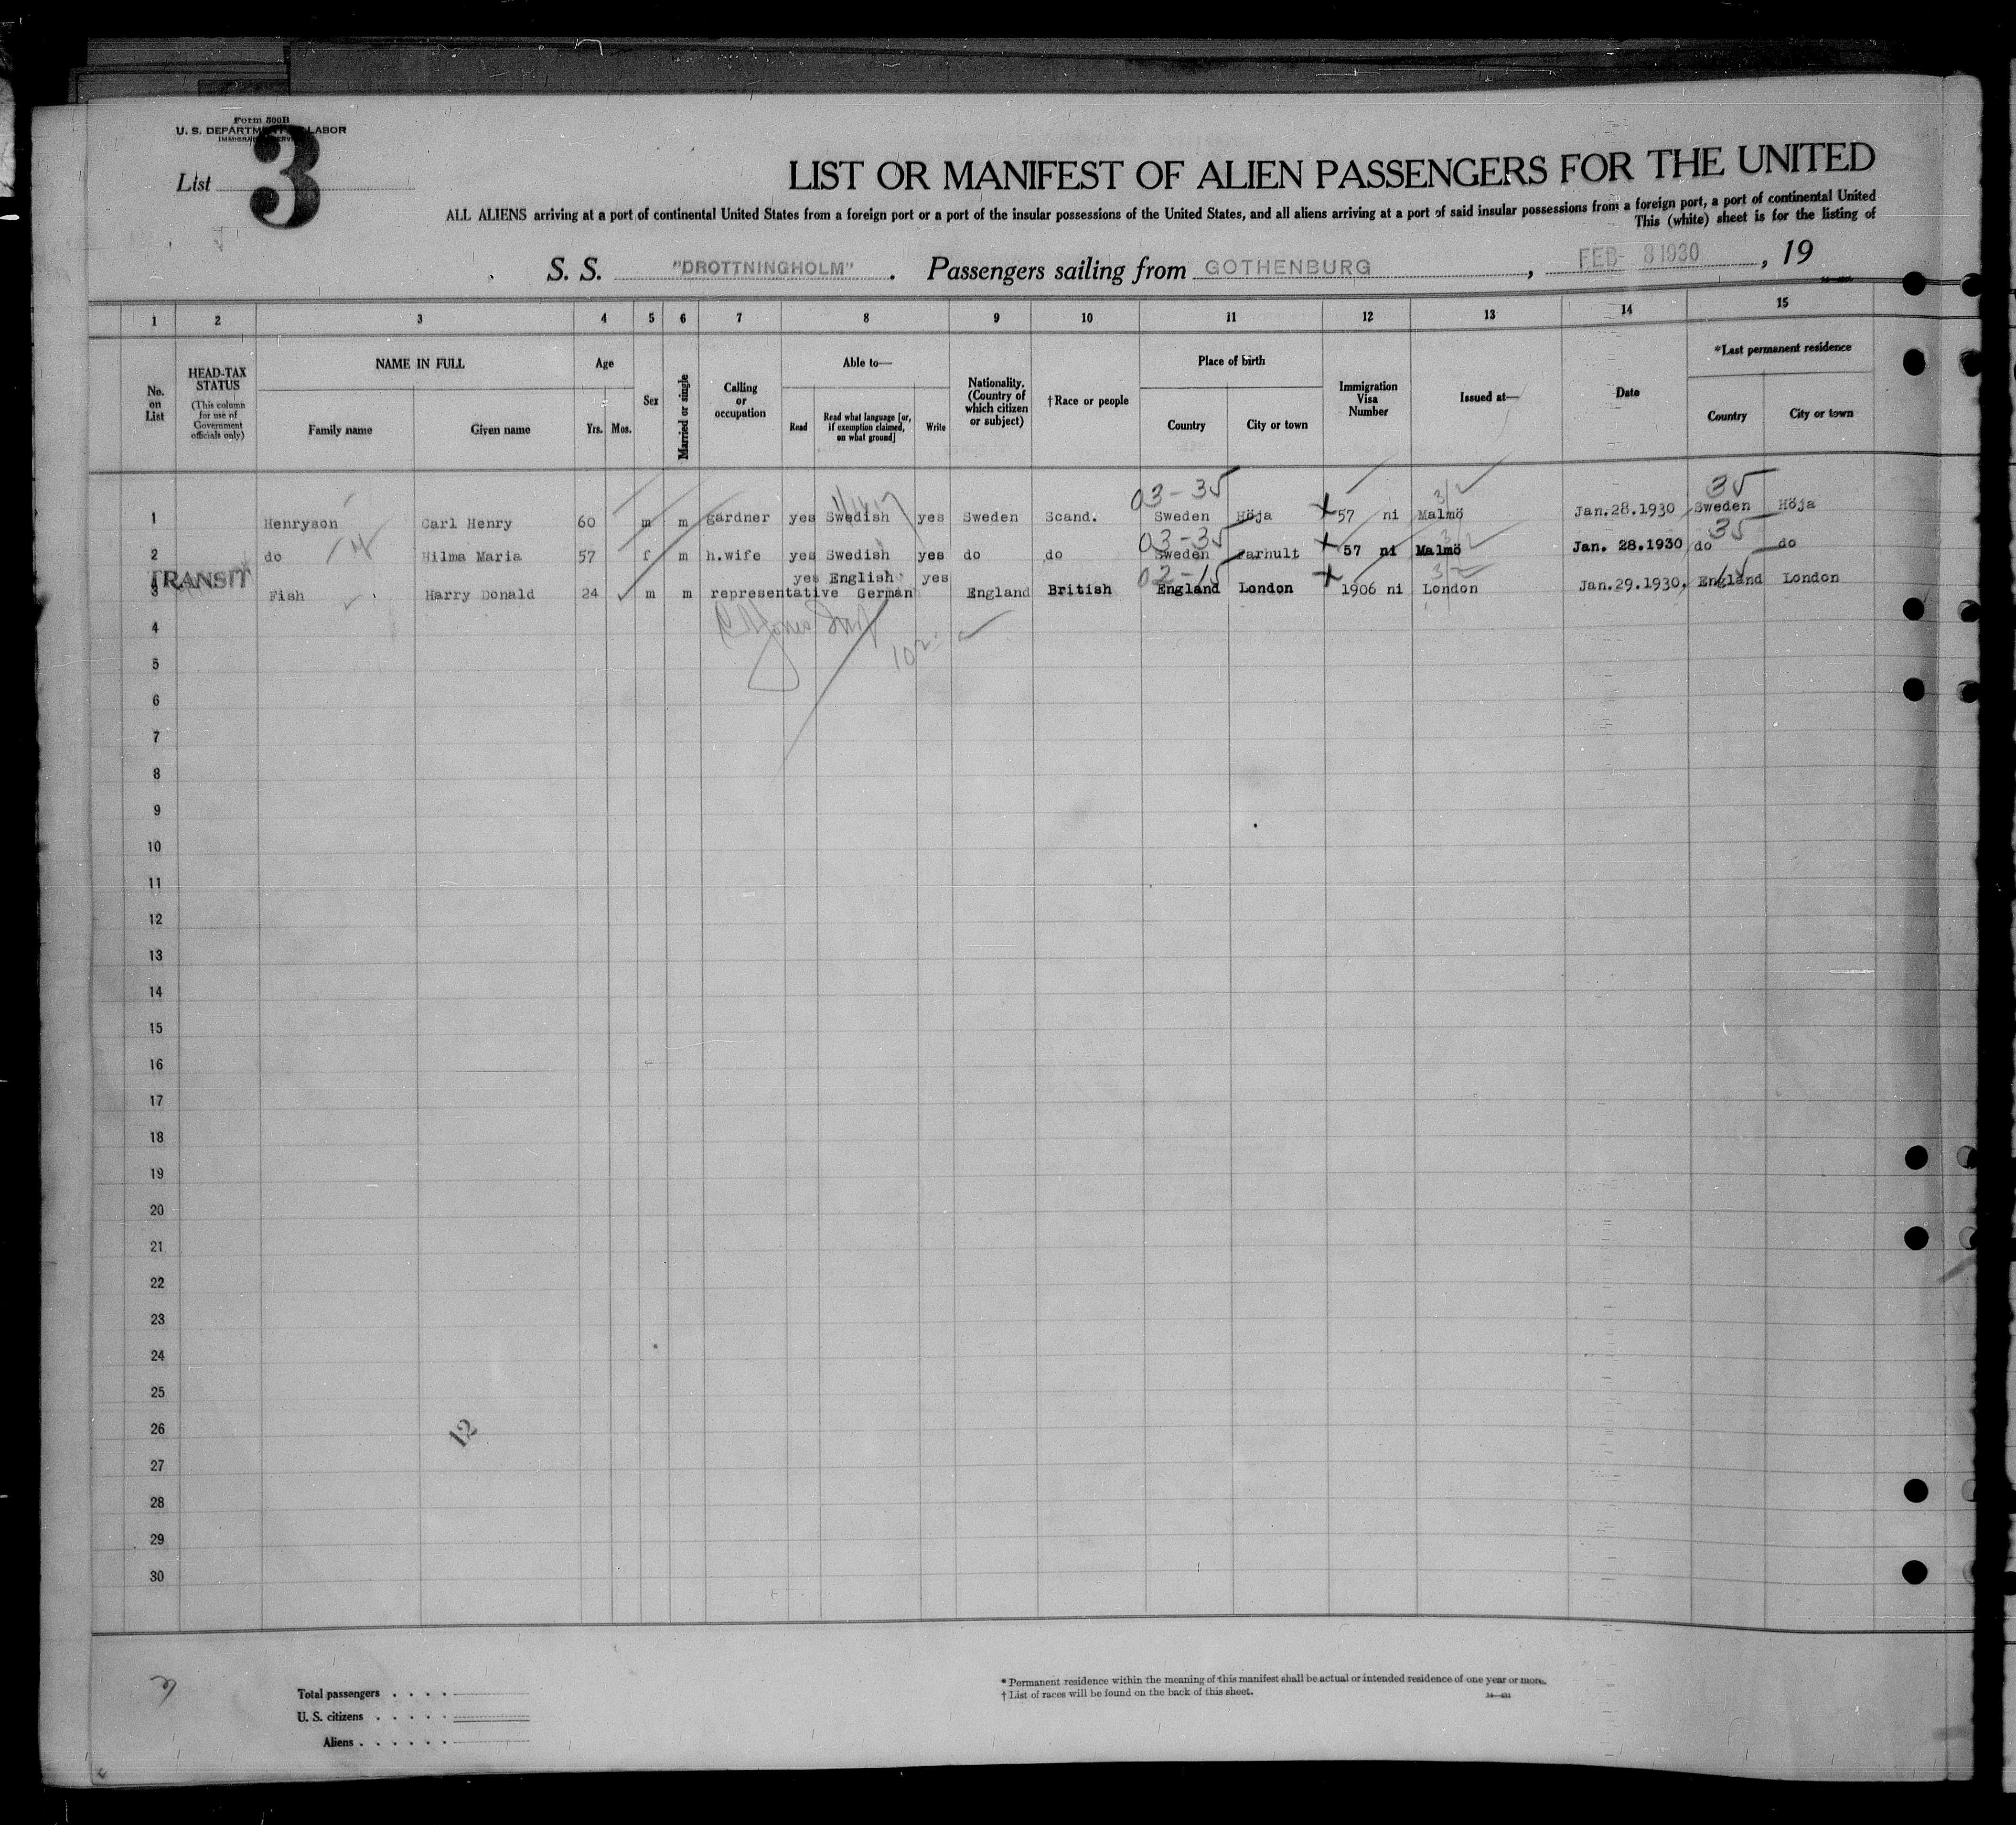 Form 500B
U. S. DEPARTMENT OF LABOR
IMMIGRATION SERVICE
List 3
LIST OR MANIFEST OF ALIEN PASSENGERS FOR THE UNITED
ALL ALIENS arriving at a port of continental United States from a foreign port or a port of the insular possessions of the United States, and all aliens arriving at a port of said insular possessions from a foreign port, a port of continental United
This (white) sheet is for the listing of
S. S. "DROTTNINGHOLM". Passengers sailing from GOTHENBURG, FEB- 8 1930, 19
1 2 3 4 5 6 7 8 9 10 11 12 13 14 15
No. on List
HEAD-TAX STATUS (This column for use of Government officials only)
NAME IN FULL
Family name Given name
Age
Yrs. Mos.
Sex
Married or single
Calling or occupation
Able to—
Read Read what language [or, if exemption claimed, on what ground] Write
Nationality. (Country of which citizen or subject)
†Race or people
Place of birth
Country City or town
Immigration Visa Number
Issued at—
Date
*Last permanent residence
Country City or town
03-35 3/2 35
1 Henryson Carl Henry 60 m m gardner yes Swedish yes Sweden Scand. Sweden Höja 57 ni Malmö Jan.28.1930 Sweden Höja
03-35 35
2 do Hilma Maria 57 f m h.wife yes Swedish yes do do Sweden Farhult 57 ni Malmö Jan. 28.1930 do do
TRANSIT yes English yes 02-15 15
3 Fish Harry Donald 24 m m representative German England British England London 1906 ni London Jan.29.1930, England London
4
5
6
7
8
9
10
11
12
13
14
15
16
17
18
19
20
21
22
23
24
25
26
12
27
28
29
30
Total passengers . . . .
U. S. citizens . . . . .
Aliens . . . . . .
* Permanent residence within the meaning of this manifest shall be actual or intended residence of one year or more.
† List of races will be found on the back of this sheet.